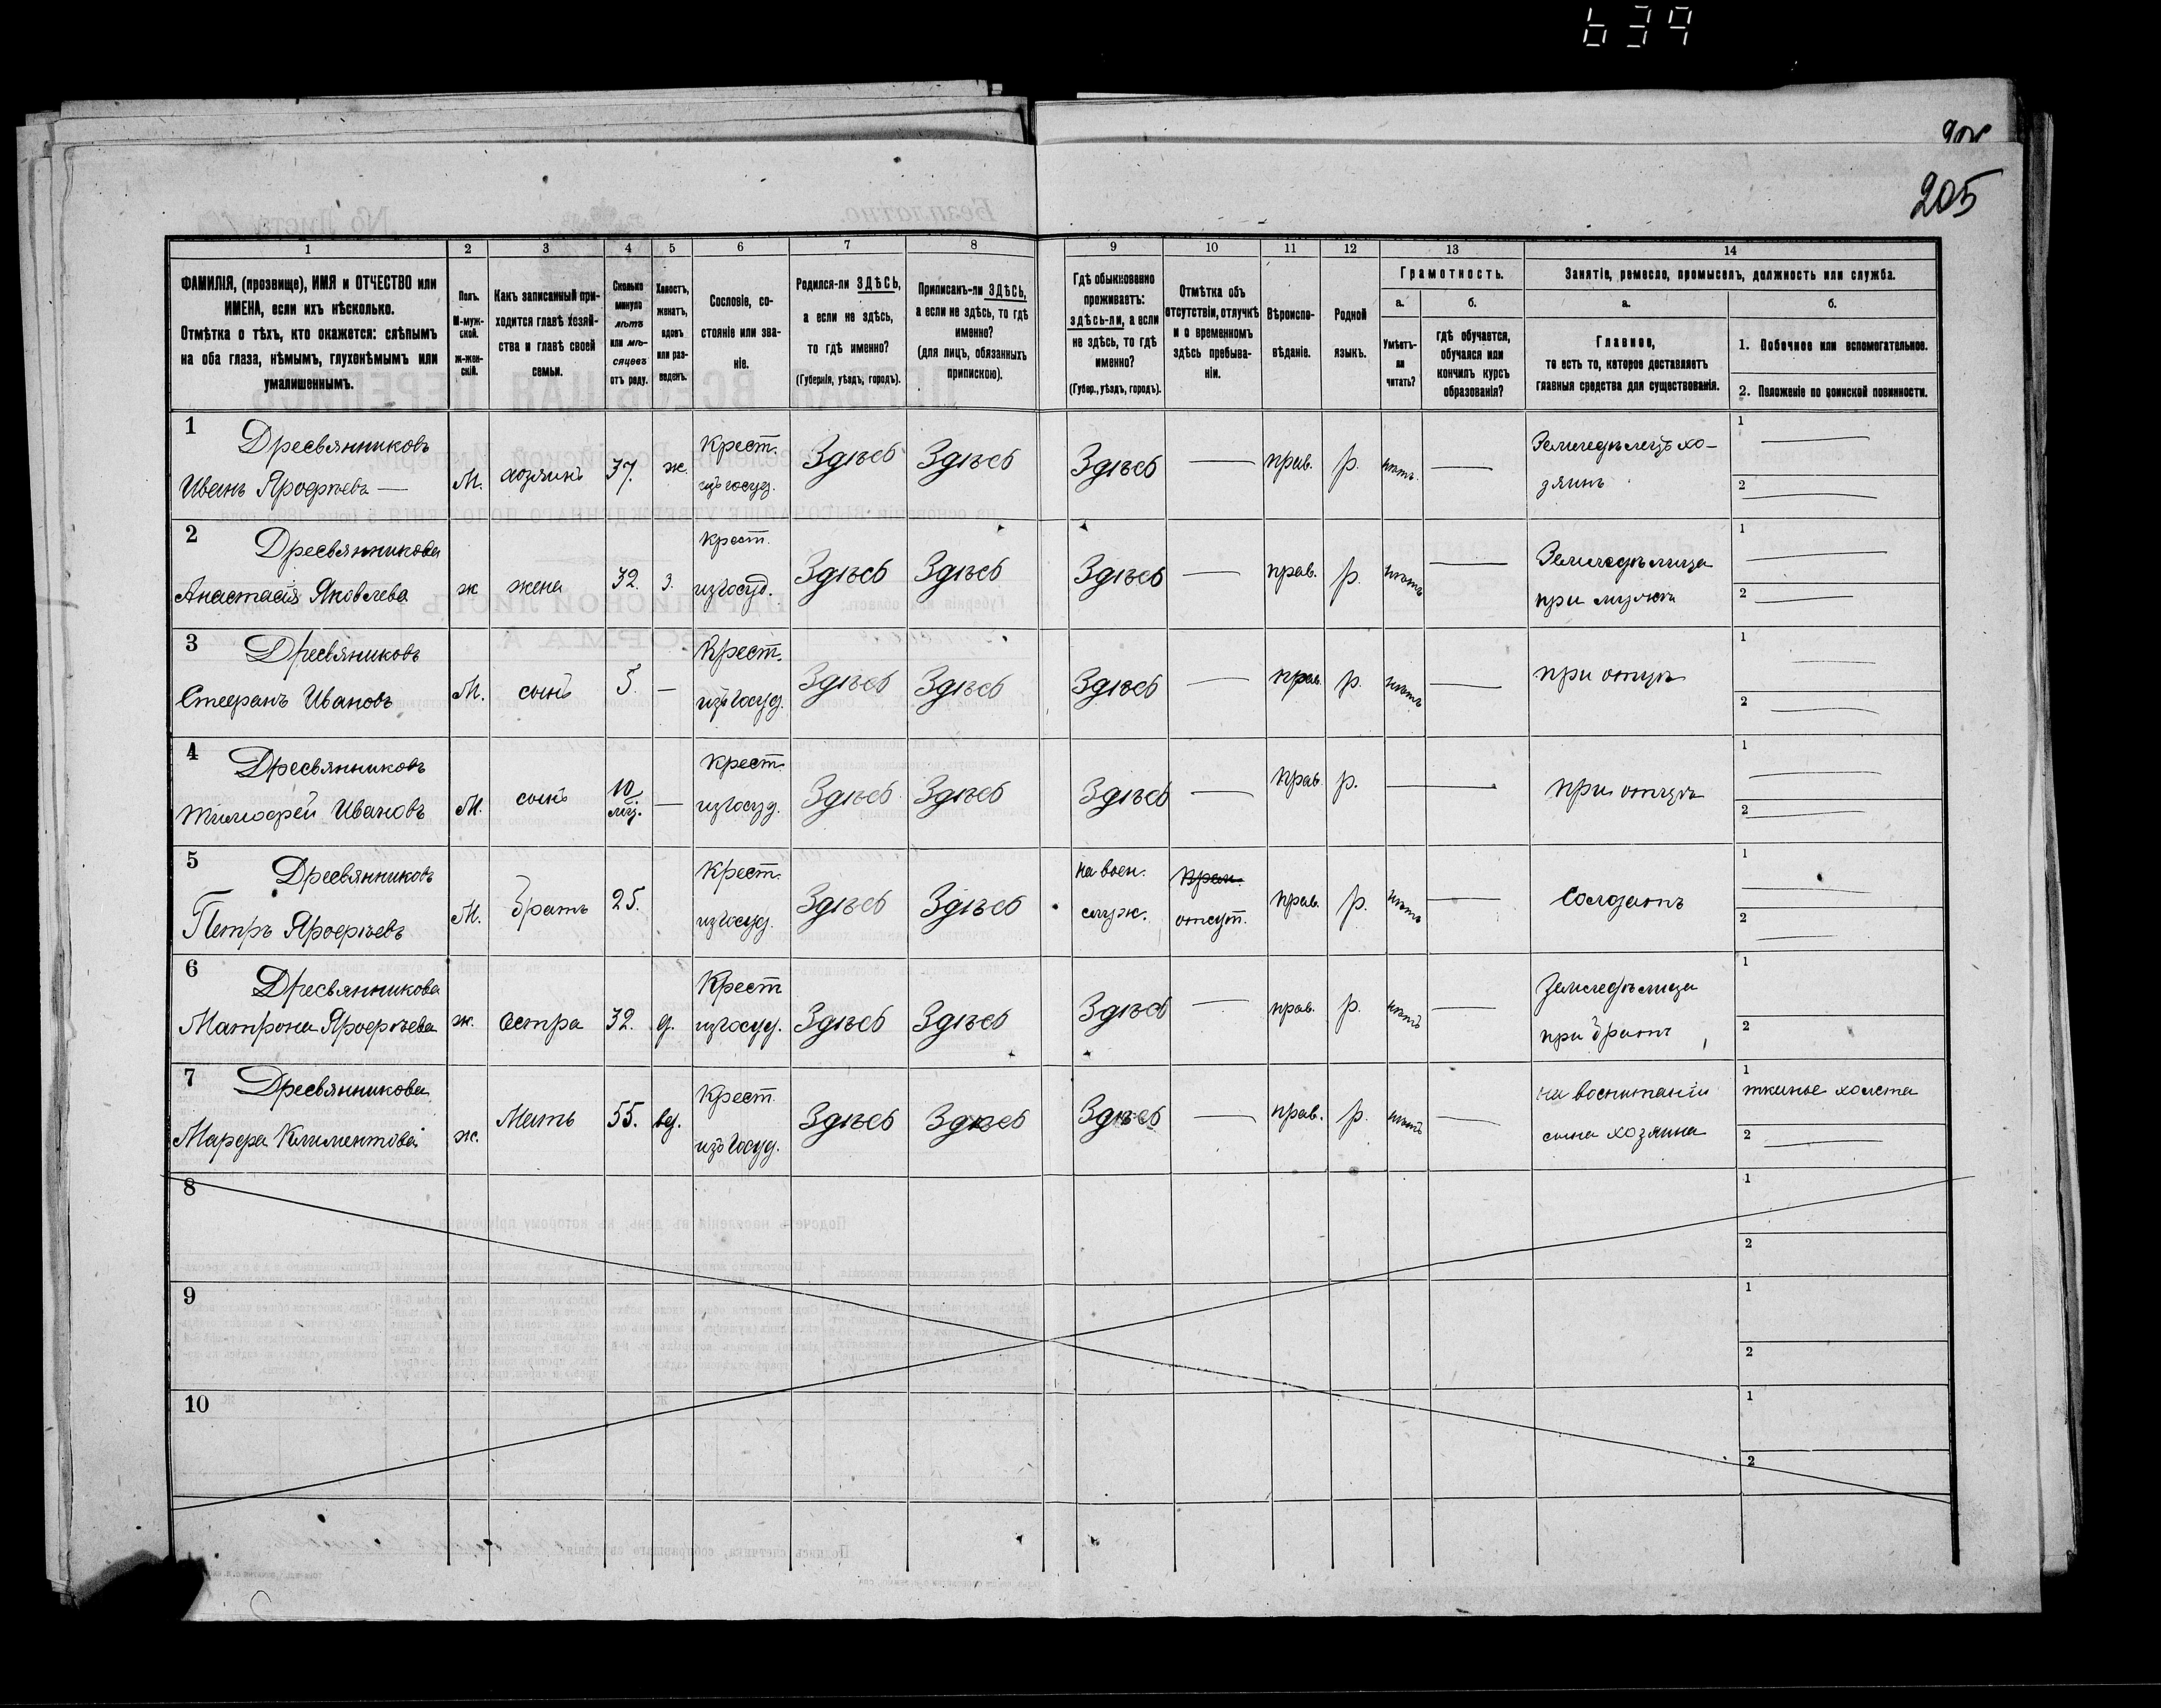 639
205
1 2 3 4 5 6 7 8 9 10 11 12 13 14
ФАМИЛІЯ, (прозвище), ИМЯ и ОТЧЕСТВО или
ИМЕНА, если ихъ нѣсколько.
Отмѣтка о тѣхъ, кто окажется: слѣпымъ
на оба глаза, нѣмымъ, глухонѣмымъ или
умалишеннымъ.
Полъ.
М-муж-
ской.
Ж-жен-
скій.
Какъ записанный при-
ходится главѣ хозяй-
ства и главѣ своей
семьи.
Сколько
минуло
лѣтъ
или мѣ-
сяцевъ
отъ роду.
Холостъ,
женатъ,
вдовъ
или раз-
веденъ.
Сословіе, со-
стояніе или зва-
ніе.
Родился-ли ЗДѢСЬ,
а если не здѣсь,
то гдѣ именно?
(Губернія, уѣздъ, городъ).
Приписанъ-ли ЗДѢСЬ,
а если не здѣсь, то гдѣ
именно?
(для лицъ, обязанныхъ
припискою).
Гдѣ обыкновенно
проживаетъ:
здѣсь-ли, а если
не здѣсь, то гдѣ
именно?
(Губер., уѣздъ, городъ).
Отмѣтка объ
отсутствіи, отлучкѣ
и о временномъ
здѣсь пребыва-
ніи.
Вѣроиспо-
вѣданіе.
Родной
языкъ.
Грамотность.
а.
Умѣетъ-
ли
читать?
б.
гдѣ обучается,
обучался или
кончилъ курсъ
образованія?
Занятіе, ремесло, промыселъ, должность или служба.
а.
Главное,
то есть то, которое доставляетъ
главныя средства для существованія.
б.
1. Побочное или вспомогательное.
2. Положеніе по воинской повинности.
1
Дресвянниковъ
Иванъ Ярофѣевъ —
М. хозяинъ 37. ж.
Крест.
изъ госуд.
Здѣсь Здѣсь Здѣсь — прав. р. нѣтъ. —
Земледѣлецъ хо-
зяинъ
1 —
2 —
2
Дресвянникова
Анастасія Яковлева
ж жена 32. з.
крест.
изъ госуд.
Здѣсь Здѣсь Здѣсь — прав. р. нѣтъ —
Земледѣлица
при мужѣ
1 —
2 —
3
Дресвяниковъ
Стефанъ Ивановъ
М. сынъ 5. —
Крест.
изъ госуд.
Здѣсь Здѣсь Здѣсь — прав. р. нѣтъ —
при отцѣ
1 —
2 —
4
Дресвянниковъ
Тимофей Ивановъ
М. сынъ 10 мѣ. —
Крест.
изъ госуд.
Здѣсь Здѣсь Здѣсь — прав. р. — —
при отцѣ
1 —
2 —
5
Дресвянниковъ
Петръ Ярофѣевъ
М. братъ 25.
Крест.
изъ госуд.
Здѣсь Здѣсь
на воен.
служ.
отсут.
прав. р. нѣтъ —
Солдатъ
1 —
2 —
6
Дресвянникова
Матрона Ярофѣева
ж. сестра 32. д.
Крест
изъ госуд.
Здѣсь Здѣсь Здѣсь — прав. р. нѣтъ —
Земледѣлица
при братѣ
1
2
7
Дресвянникова
Марфа Климентова
ж. Мать 55. вд.
Крест.
изъ госуд.
Здѣсь Здѣсь Здѣсь — прав. р. нѣтъ —
на воспитаніи
сына хозяина
1 тканье холста
2 —
8
1
2
9
1
2
10
1
2